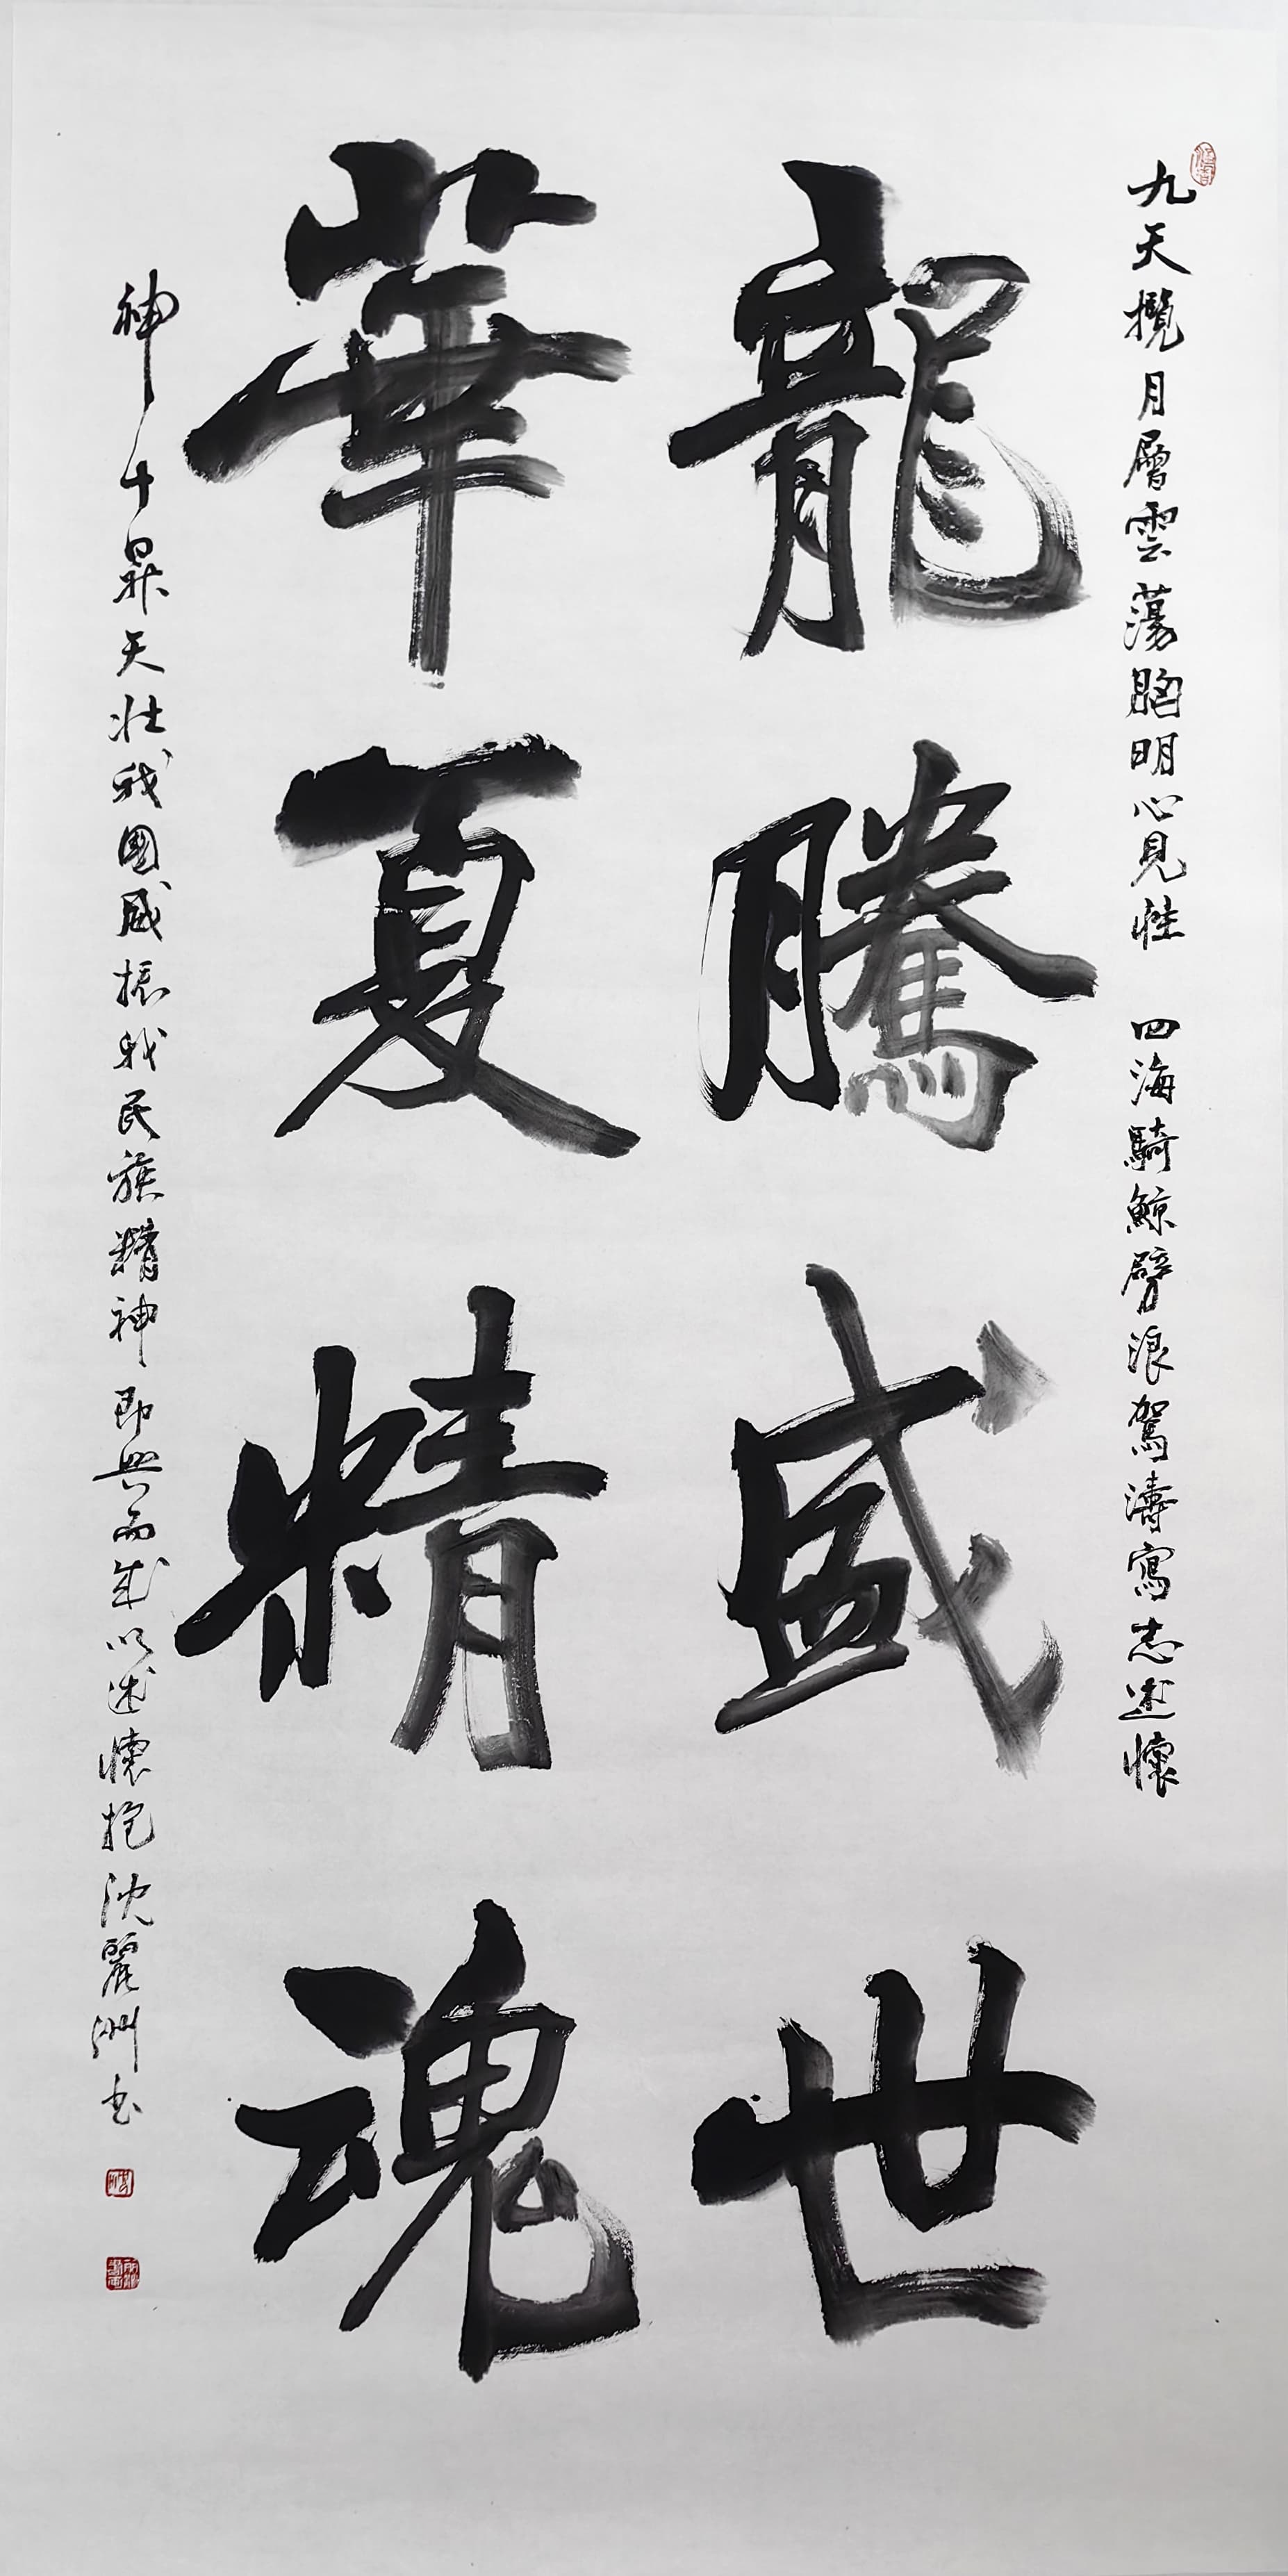 九天攬月層雲蕩胸明心見性 四海騎鯨劈浪駕濤寫志述懷
龍騰盛世
華夏精魂
神十昇天壯我國威振我民族精神即興而成以述懷抱沈麗洲书